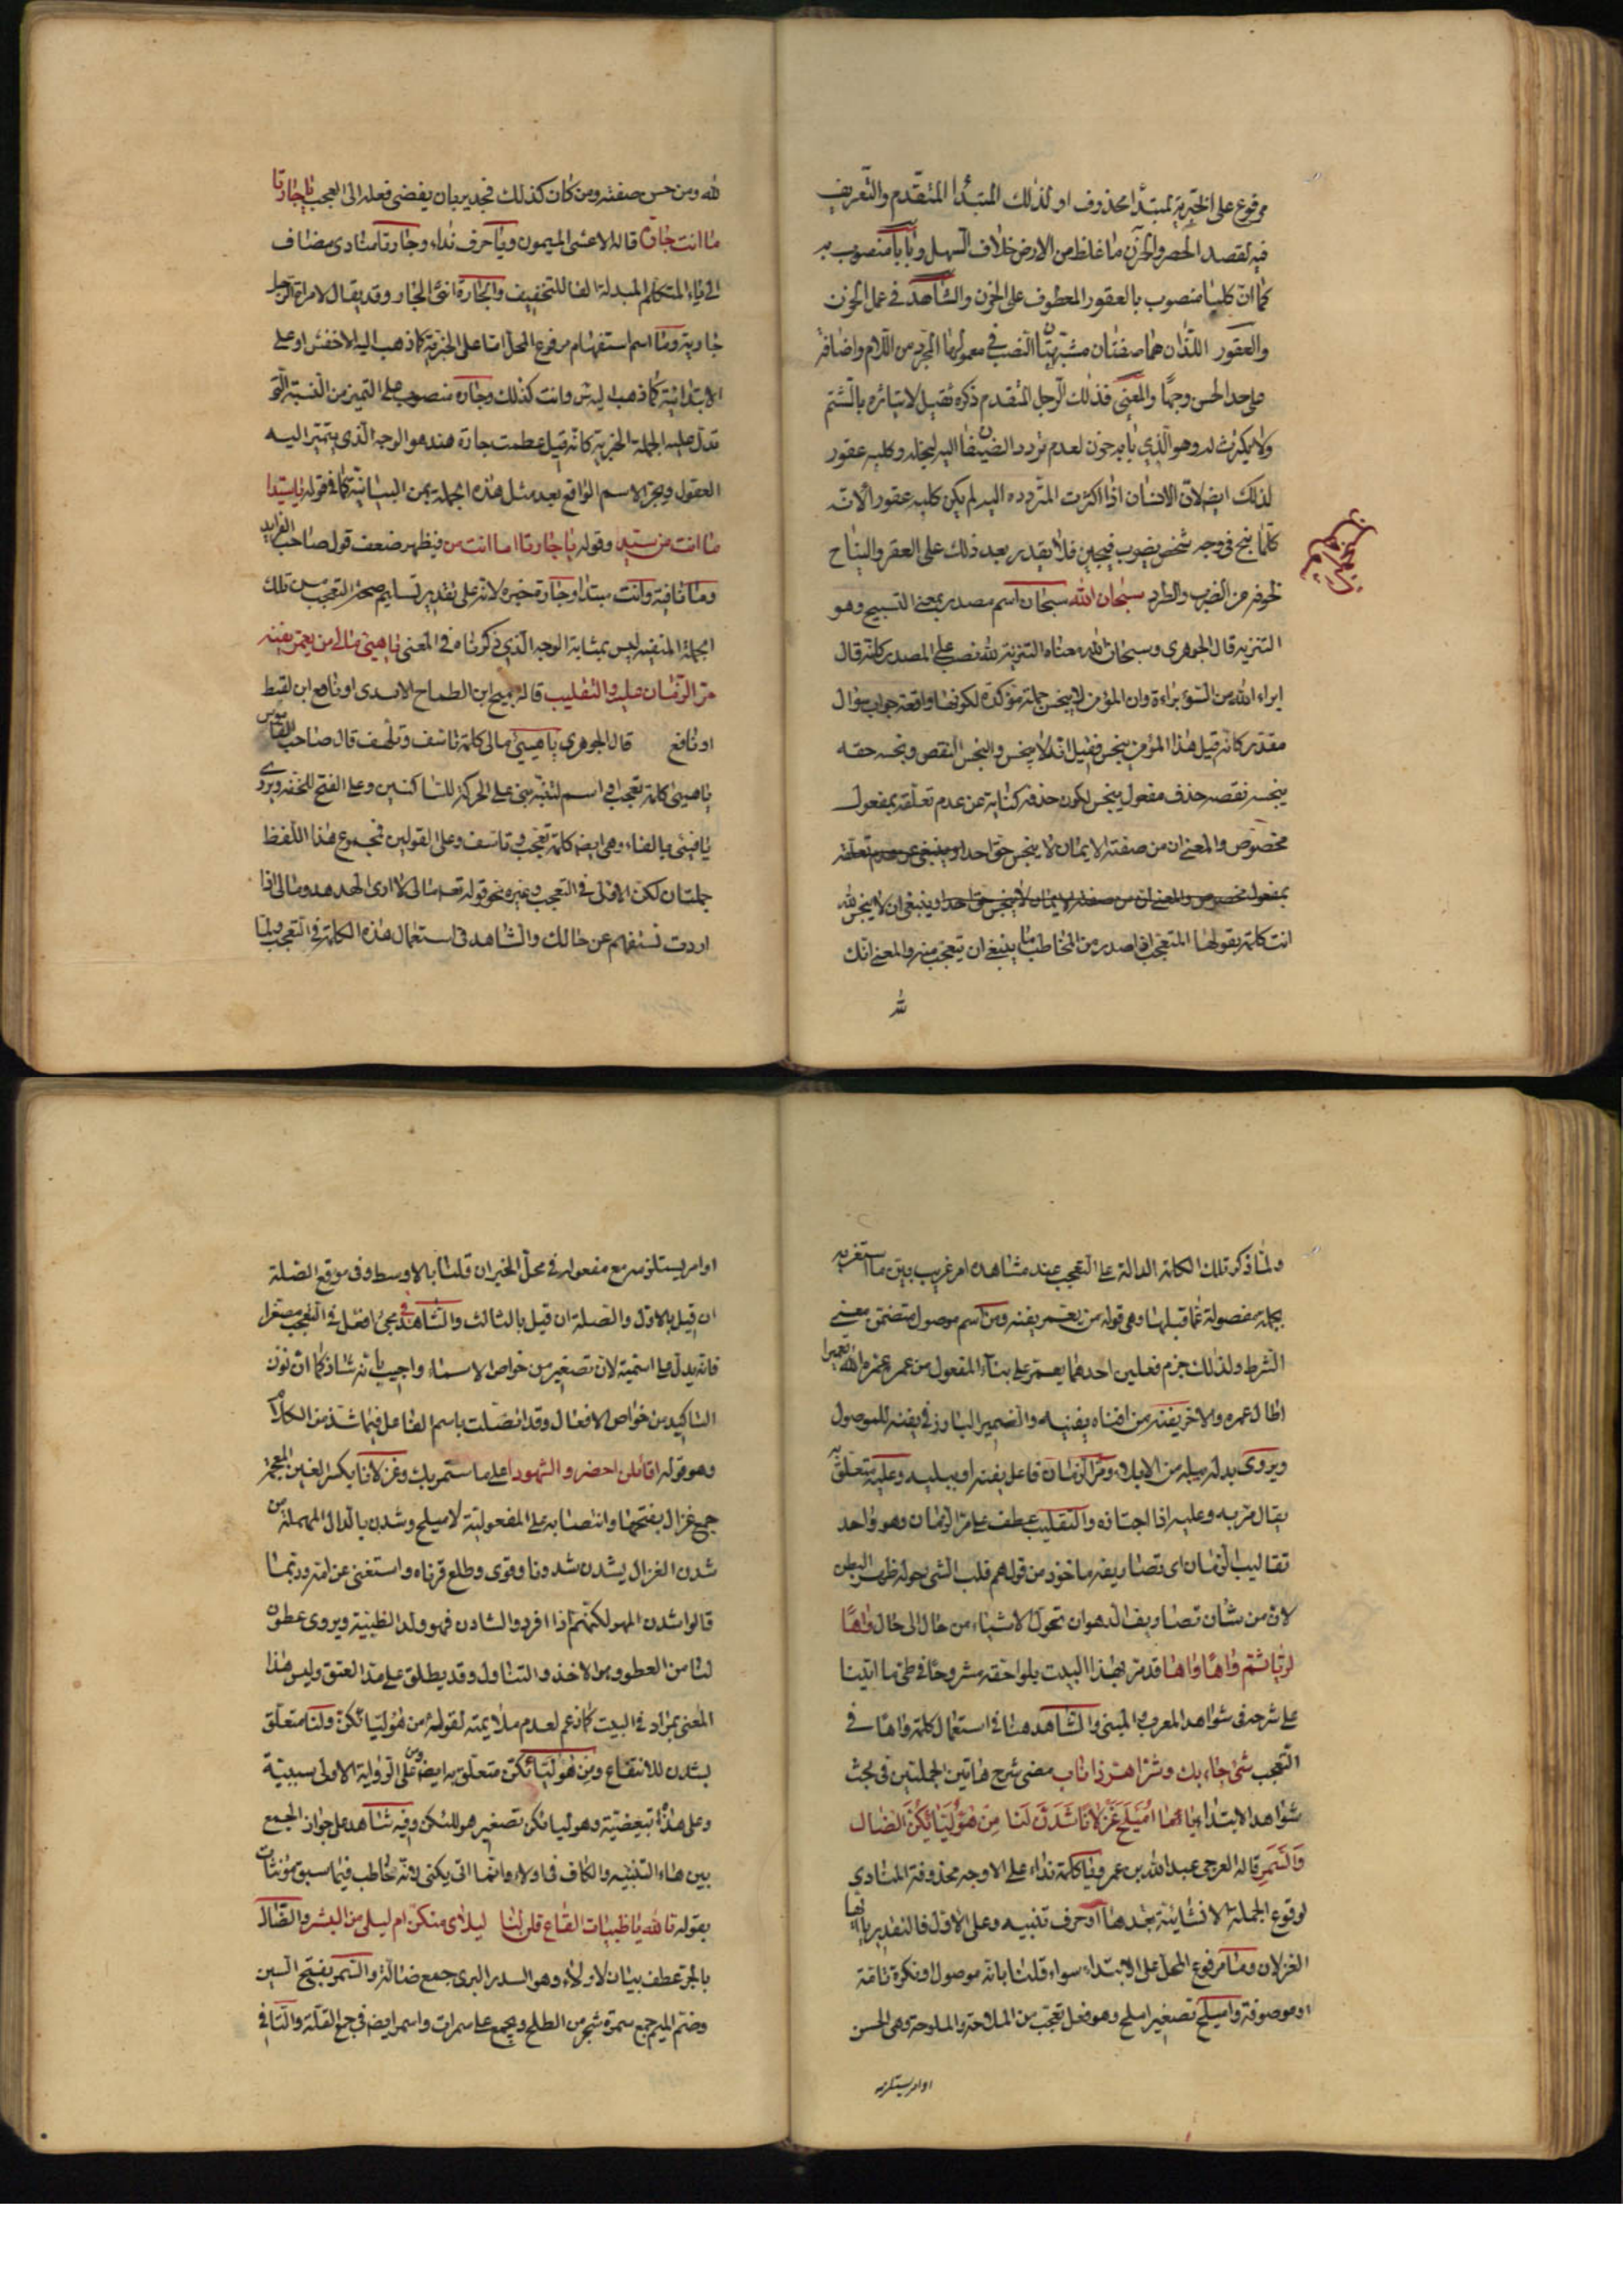 مرفوع على الخبرية لمبتدأ محذوف او لذلك المبتدأ المتقدم والتعريف
فيه لقصد الحصر والحزن ما غلظ من الارض خلاف السهل وبابا منصوب به
كما ان كلبا منصوب بالعقور المعطوف على الحزن والشاهد في عمل الحزن
والعقور اللذان هما صفتان مشبهتان النصب في معمولهما المجرد من اللام واضافة
على حد الحسن وجها والمعنى فذلك الرجل المتقدم ذكره بالشتم
ولا يكترث له وهو الذي بابه حزن لعدم تردد الضيفان اليه لبخله وكلبه عقور
لذلك ايضا لان الانسان اذا اكثرت المتردده اليه لم يكن كلبه عقورا لانه
كلما ينبح في وجه شخص يضرب فلا يقدر بعد ذلك على العقر والنباح
لخوفه من الضرب والطرد سبحان الله سبحان اسم مصدر بمعنى التسبيح وهو
التنزيه قال الجوهري وسبحان الله معناه التنزيه لله نصب على المصدر كانه قال
ابراء الله من السوء براءة وان المؤمن لا ينجس جملة مؤكدة لكونها واقعة جواب سؤال
مقدر كانه قيل هذا المؤمن ينجس فقيل انه لا ينجس والبخس النقص وبخسه حقه
يبخسه نقصه حذف مفعول ينجس ليكون حذفه كناية عن عدم تعلقه بمفعول
مخصوص والمعنى ان من صفته الايمان لا ينجس حق احد او ينبغي عن عدم تعلقه
بمفعول مخصوص والمعنى ان من صفته الايمان لا ينجس حق احد او ينبغي ان لا ينجس لله
انت كلمة يقولها المتعجب اذا صدر من المخاطب ما ينبغي ان يتعجب منه والمعنى انك
لله
لله ومن حسن صفته ومن كان كذلك فجدير بان يفضي فعله الى العجب يا جارتا
ما انت جارة قاله الاعشى الميمون ويا حرف نداء وجارتا منادى مضاف
الى ياء المتكلم المبدلة الفا للتخفيف والجارة انثى الجار وقد يقال لامراة الرجل
جاريته وما اسم استفهام مرفوع المحل اما على الخبرية كما ذهب اليه الاخفش او على
الابتدائية كما ذهب اليه س وانت كذلك وجارة منصوب على التميز من النسبة التي
تدل عليه الجملة الخبرية كانه قيل عظمت جارة هند هو الوجه الذي يتميز اليه
العقول ويجر الاسم الواقع بعد مثل هذه الجملة بمن البيانية كما في قوله يا سيدا
ما انت من سيد وقوله يا جارتا ما انت من فيظهر ضعف قول صاحب الفرايد
وما نافية وانت مبتدا وجارة خبره لانه على تقدير تسليم صحة التعجب من تلك
الجملة المنفية ليس بمثابة الوجه الذي ذكرناه في المعنى يا هيئ مالي من يعمر يفنه
مر الزمان عليه والتقليب قاله جميح ابن الطماح الاسدى او نافع ابن لقيط
او نافع قال الجوهري يا هيئ مالي كلمة تاسف وتلهف قال صاحب القاموس
يا هيئ كلمة تعجب او اسم لتنبه بني على الحركة للساكنين وعلى الفتح للخفة ويروى
يا فيئى بالفاء وهي ايضا كلمة تعجب وتاسف وعلى القولين فمجموع هذا اللفظ
جملتان لكن الاولى في التعجب وغيره نحو قوله تعالى مالي لا ارى الهدهد ومالي اذا
اردت تستفهم عن حالك والشاهد في استعمال هذه الكلمة في التعجب ولما
ولما ذكر تلك الكلمة الدالة على التعجب عند مشاهدة امر غريب بين ما استغربه
بجملة مفصولة عما قبلها وهي قوله من يعمر يفنه ومن اسم موصول متضمن معنى
الشرط ولذلك جزم فعلين احدهما يعمر على بناء المفعول من عمر عمره الله تعميرا
اطال عمره والاخر يفنه من افناه يفنيه والضمير البارز في يفنه للموصول
ويروى بدله يبله من الابلاء ومر الزمان فاعل يفنه او يبليه وعليه متعلق به
يقال مر به وعليه اذا اجتازه والتقليب عطف على مر الزمان وهو واحد
تقاليب الزمان اى تصاريفه ماخوذ من قولهم قلب الشى حوله ظهر البطن
لان من شان تصاريف الدهر ان تحول الاشياء من حال الى حال واها
لريا ثم واها واها قد مر بهذا البيت بلواحقه مشروحا في طى ما اتينا
على شرحه في شواهد المعرب والمبنى والشاهد هنا في استعمال كلمة واها في
التعجب شئ جاء بك وشر اهر ذا ناب مضى شرح هاتين الجملتين في بحث
شواهد الابتداء يا ما اميلح غزلانا شدن لنا من هؤليائكن الضال
والسمر قاله العرجي عبد الله بن عمر ويا كلمة نداء على الاوجه محذوفة المنادي
لوقوع الجملة الانشائية بعدها او حرف تنبيه وعلى الاول فالتقدير يا ايها
الغزلان وما مرفوع المحل على الابتداء سواء قلنا بانه موصول او نكرة تامة
او موصوفة واميلح تصغير املح وهو فعل تعجب من الملاحة والملوحة وهى الحسن
او امر يستلزمه
او امر يستلزمه مع مفعوله في محل الخبر ان قلنا بالاوسط وفي موقع الصلة
ان قيل بالاول والصلة ان قيل بالثالث والشاهد في مجئ افعل في التعجب مصغرا
فانه يدل على اسميته لان تصغير من خواص الاسماء واجيب بانه شاذ كما ان نون
التاكيد من خواص الافعال وقد اتصلت باسم الفاعل فيما شذ من الكلام
وهو قوله اقائلن احضروا الشهودا على ما ستمر بك وغزلانا بكسر الغين المعجمة
جمع غزال بفتحها وانتصابه على المفعولية لاميلح وشدن بالدال المهملة من
شدن الغزال يشدن شدونا وقوى وطلع قرناه واستغنى عن امه وربما
قالوا شدن المهر لكنهم اذا افردوا الشادن فهو ولد الظبية ويروى عطون
لنا من العطو وهو الاخذ والتناول وقد يطلق على مد العنق وليس هذا
المعنى بمراد في البيت كما زعم لعدم ملايمته لقوله من هؤليائكن ولنا متعلق
بشدن للانتفاع ومن هؤليائكن متعلق به ايضا ومن على الرواية الاولى سببية
وعلى هذا تبعيضية وهوليائكن تصغير هوللئكن وفيه شاهد على جواز الجمع
بين هاء التنبيه والكاف في اولاء وانما اتى بكن لانه خاطب فيما سبق مؤنثات
بقوله تالله يا ظبيات القاع قلن لنا ليلاى منكن ام ليلى من البشر والضال
بالجر عطف بيان لاولاء وهو السدر البرى جمع ضالة والسمر بفتح السين
وضم الميم جمع سمرة شجر من الطلح ويجمع على سمرات واسمر ايضا في جمع القلة والتا في